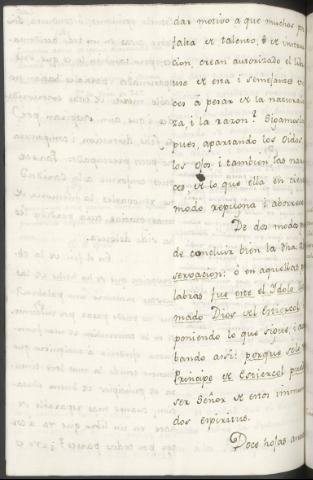 dar motivo a que muchos por
falta de talento, o de instruc
cion, crean autorizado el
use de esta i semejantes vo
ces à pesar de la naturale
za, i la razon? Sigamosla
pues, apartando los oidos,
los ojos, i tambien las nari
ces, de lo que ella en cierto
modo repugna i aborrece.
De dos modos
de concluir bien la
servacion: ò en aquellas pa
labras fue este el Idolo lla
mado Dios del Estiercol
poniendo lo que sigue; i aca
bando assi: porque solo
Principe de Estiercol puede
ser Señor de estos inmun
dos espiritus.
Doce hojas